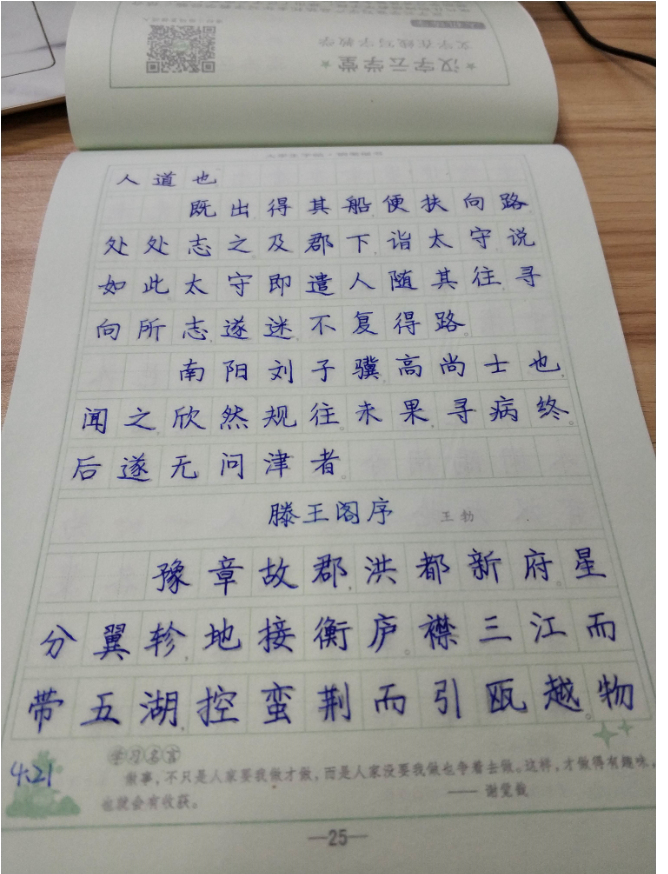 ★ 汉字云学堂 ★
文字在线写字教学
人道也
既出得其船便扶向路
处处志之及郡下诣太守说
如此太守即遣人随其往寻
向所志遂迷不复得路
南阳刘子骥高尚士也
闻之欣然规往未果寻病终
后遂无问津者
滕王阁序 王勃
豫章故郡洪都新府星
分翼轸地接衡庐襟三江而
带五湖控蛮荆而引瓯越物
学习名言
4.21
做事,不只是人家要我做才做,而是人家没要我做也争着去做。这样,才做得有趣味,
也就会有收获。 —— 谢觉哉
—25—